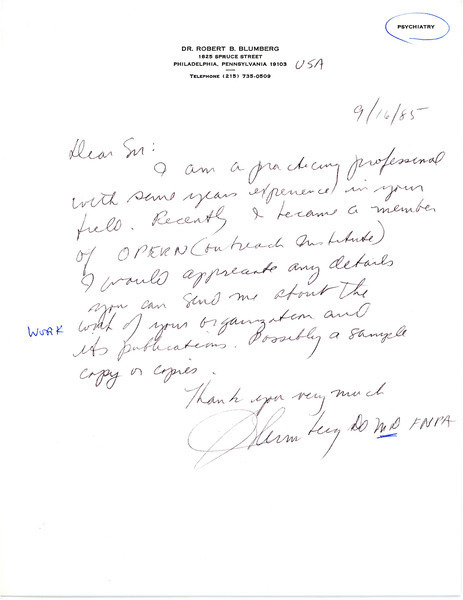 PSYCHIATRY
DR. ROBERT B. BLUMBERG
1625 SPRUCE STREET
PHILADELPHIA, PENNSYLVANIA 19103 USA
TELEPHONE (215) 735-0509
9/16/85
Dear Sir:
I am a practicing professional
with some years experience in your
field. Recently I became a member
of OPERN (Outreach Institute)
I would appreciate any details
you can send me about the
WORK
work of your organization and
its publications. Possibly a sample
copy or copies.
Thank you very much
DO MD FNPA